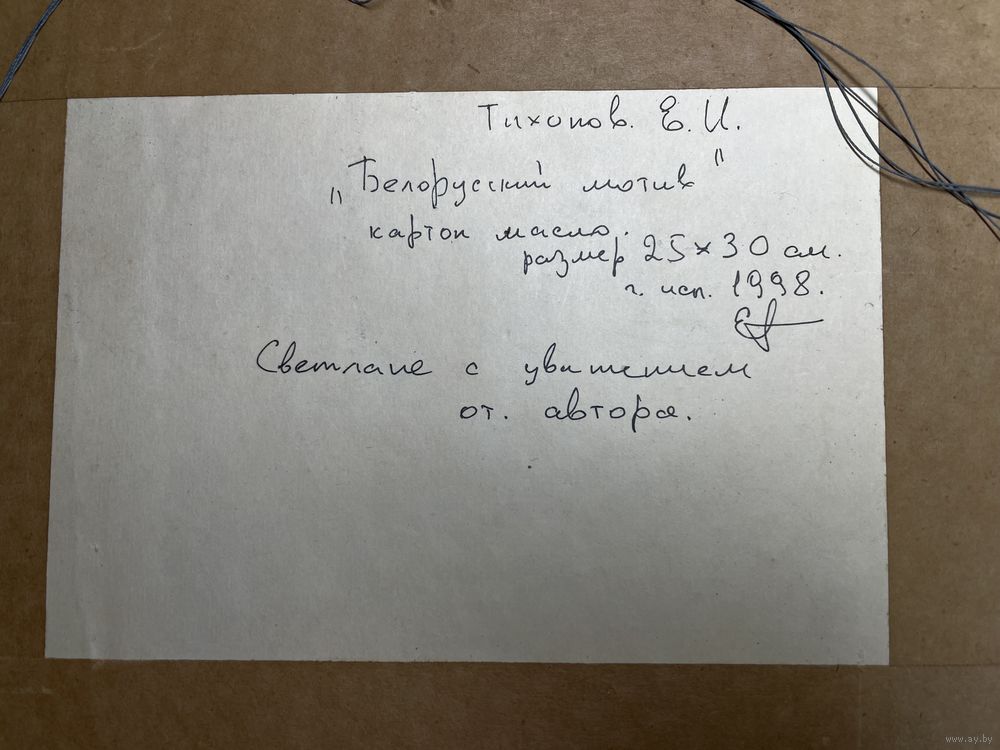 Тихонов. Е. И.
„Белорусский мотив"
картон масло.
размер 25 x 30 см.
г. исп. 1998.
Светлане с уважением
от. автора.
www.ay.by